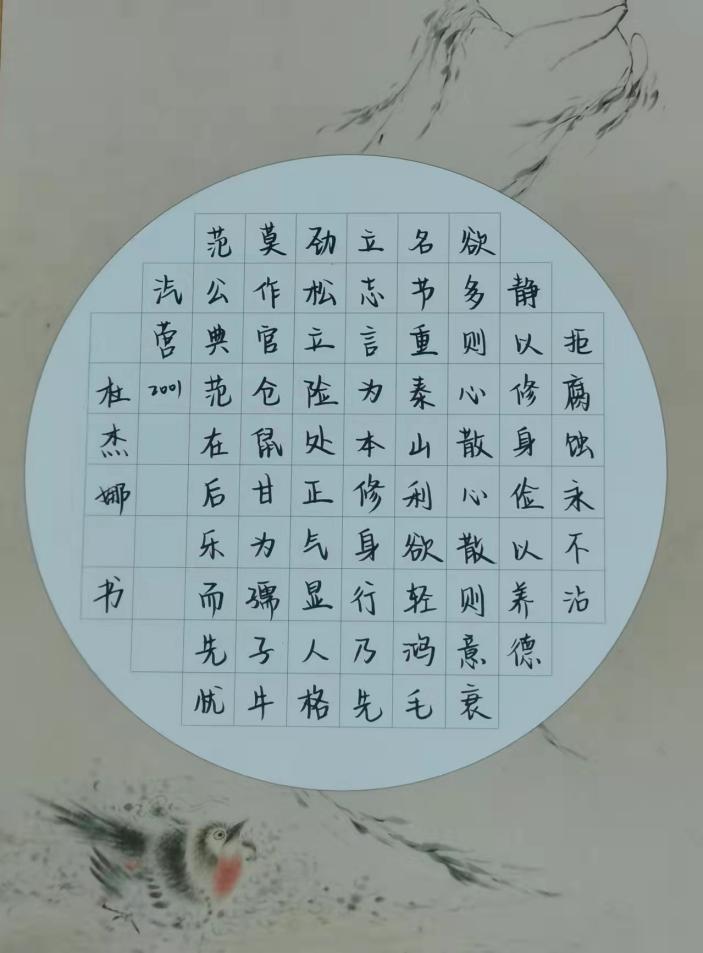 拒腐蚀永不沾
静以修身俭以养德
欲多则心散心散则意衰
名节重秦山利欲轻鸿毛
立志言为本修身行乃先
劲松立险处正气显人格
莫作官仓鼠甘为孺子牛
范公典范在后乐而先忧
汽营2001
杜杰娜 书